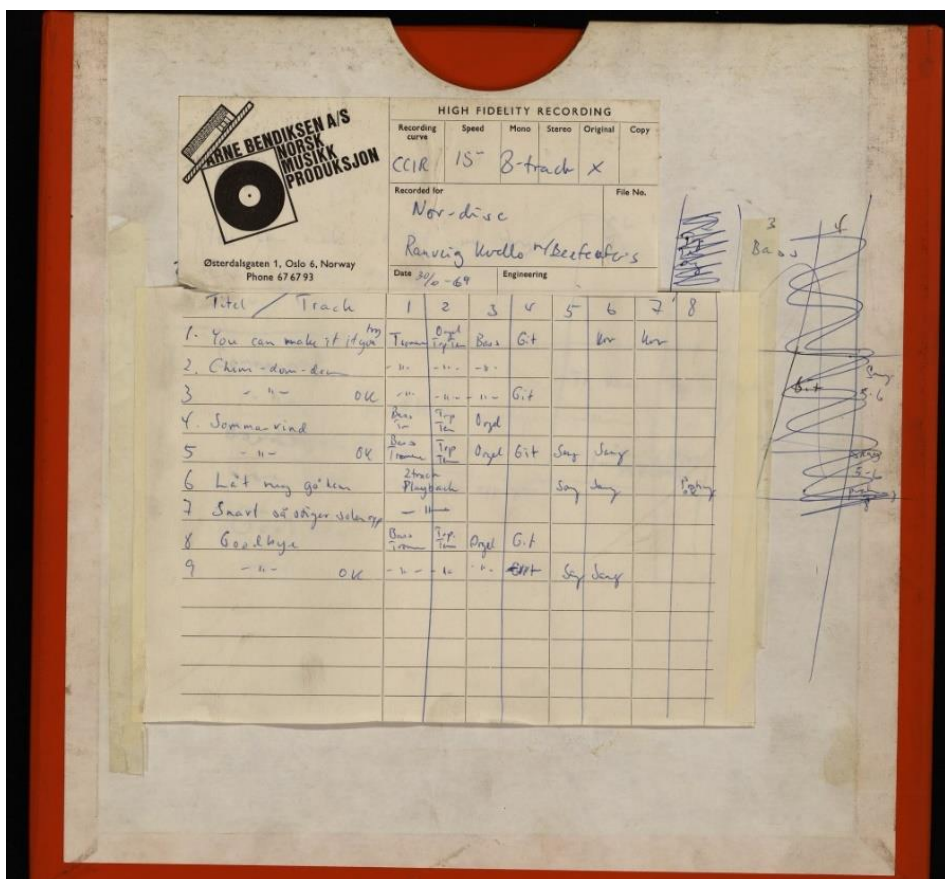 ARNE BENDIKSEN A/S
NORSK
MUSIKK
PRODUKSJON
Østerdalsgaten 1, Oslo 6, Norway
Phone 67 67 93
HIGH FIDELITY RECORDING
Recording curve Speed Mono Stereo Original Copy
CCIR 15" 8-track X
Recorded for File No.
Nor-disc
Ranveig m/Beefeaters
Date -69 Engineering
Titel / Track 1 2 3 4 5 6 7 8
1. You can make it if you try Trommer Orgel Trp Ten Bass Git Kor Kor
2. Chim-dom-dom -"- -"- -"-
3 -"- OK -"- -"- -"- Git
4. Sommarvind Bass Trp Ten Orgel
5 -"- OK Bass Tromme Trp Ten Orgel Git Sang Sang
6 Låt mig gå hem 2track Playback Sang Sang
7 Snart så stiger solen opp -"-
8 Goodbye Bass Tromme Trp. Ten Orgel Git
9 -"- OK -"- -"- -"- Sang Sang
3 4
Bass
Git
Sang
5-6
5-6